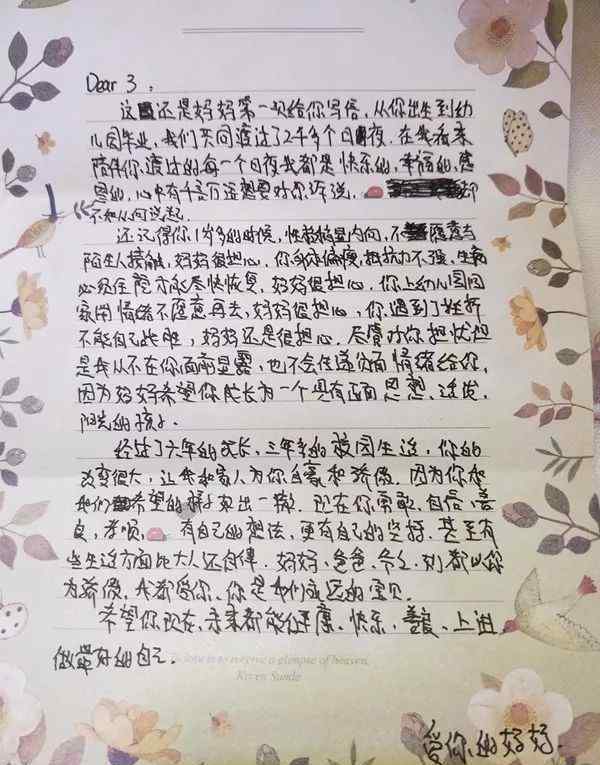 Dear 3：
这还是妈妈第一次给你写信，从你出生到幼
儿园毕业，我们共同渡过了2千多个日夜．在我看来
陪伴你渡过的每一个日夜我都是快乐的，幸福的，感
恩的，心中有千言万语想要对你诉说，都
不知从何说起．
还记得你1岁多的时候，性格内向，不愿意与
陌生人接触，妈妈很担心．你身体偏瘦，抵抗力不强，生病
必须住院才能尽快恢复，妈妈很担心．你上幼儿园回
家闹情绪不愿意再去，妈妈很担心，你遇到了挫折
不能自己，妈妈还是很担心．尽管对你担忧但
是我从不在你面前显露，也不会传递负面情绪给你，
因为妈妈希望你成长为一个具有正面思想、
阳光的孩子．
经过了六年的成长，三年多的校园生活，你的
改变很大，让我和家人为你自豪和骄傲．因为你和
我们希望的样子如出一辙．现在你勇敢、自信、善
良、孝顺、有自己的想法，更有自己的坚持．甚至有
些生活方面比大人还自律．妈妈、爸爸、都以你
为骄傲，我都爱你，你是我们永远的宝贝．
希望你现在、未来都能健康、快乐、善良、上进，
做最好的自己．
To love is to receive a glimpse of heaven.
Karen Sunde
爱你的妈妈．